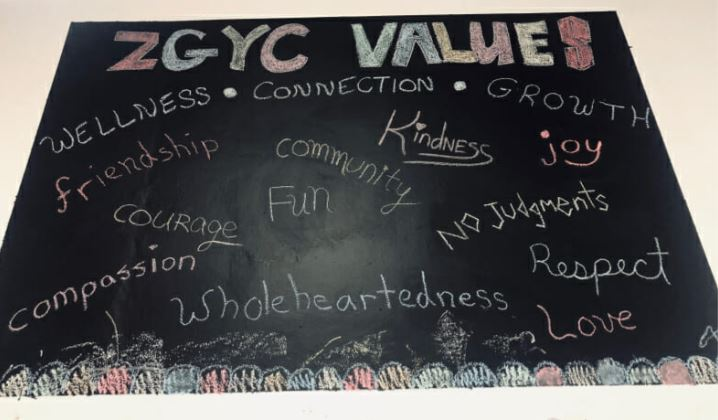 ZGYC VALUES
WELLNESS • CONNECTION • GROWTH
friendship
community
Kindness
joy
COURAGE
Fun
NO Judgments
compassion
Wholeheartedness
Respect
Love